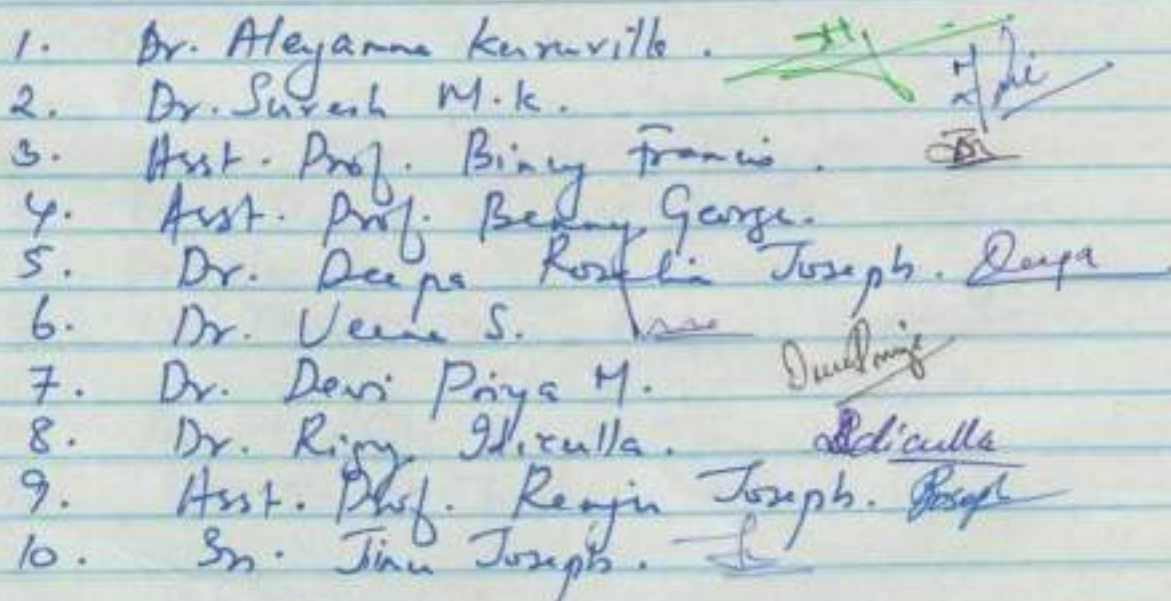 1. Dr. Aleyamma Kuruville.
2. Dr. Suresh M.K.
3. Asst. Prof. Bincy Francis.
4. Asst. Prof. Benny George.
5. Dr. Deepa Roselin Joseph. Deepa
6. Dr. Veena S.
7. Dr. Devi Priya M.
8. Dr. Riny Idiculla. Idiculla
9. Asst. Prof. Renju Joseph. Joseph
10. Sr. Jinu Joseph.